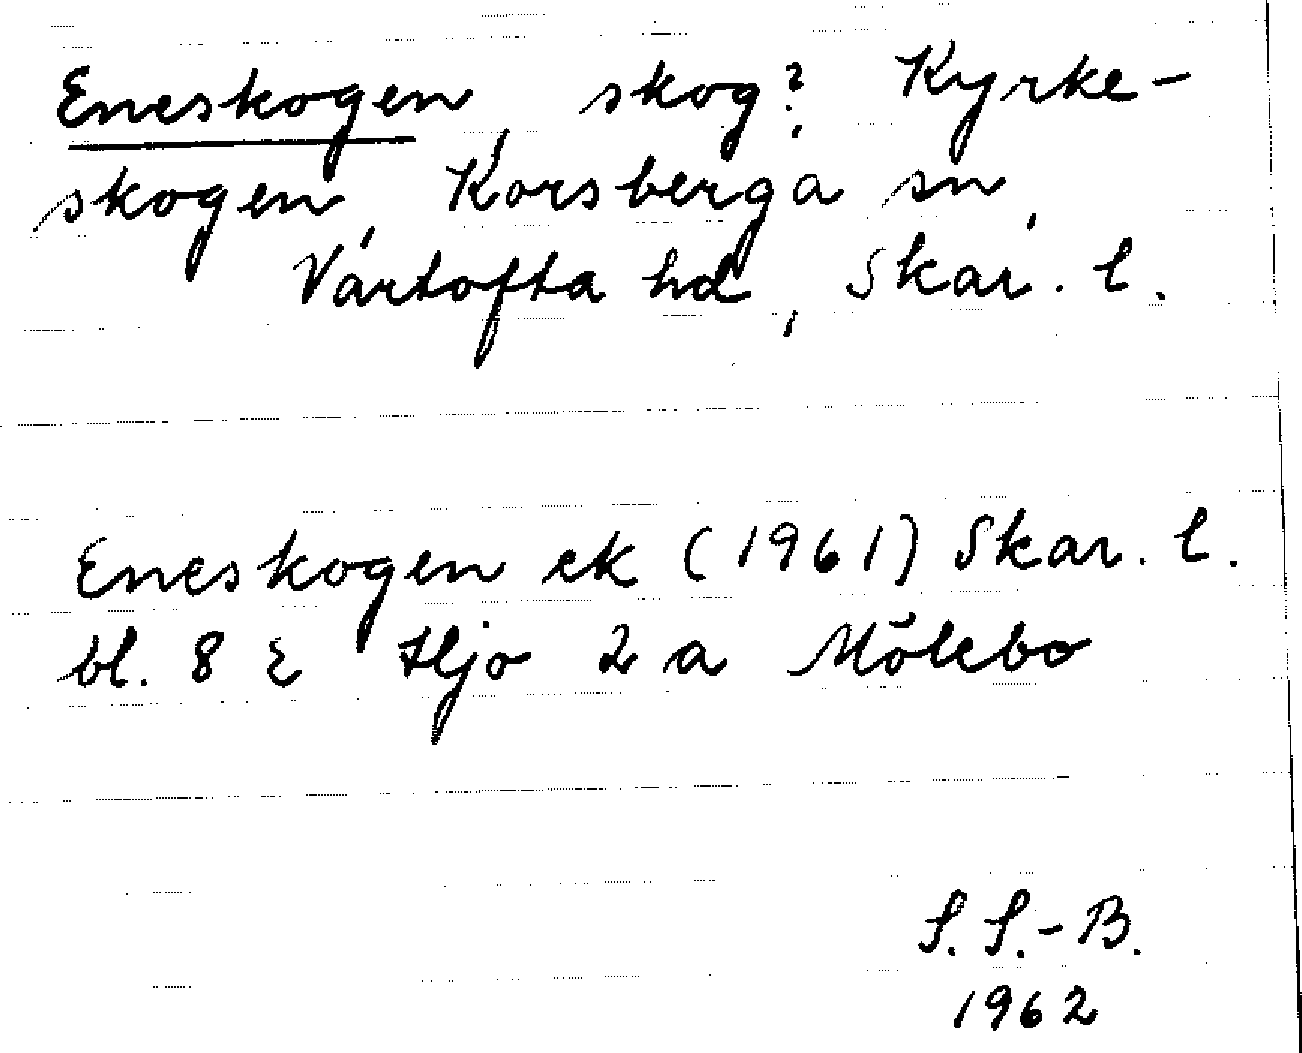 Eneskogen, skog?, Kyrke-
skogen, Korsberga sn,
Vartofta hd, Skar. l.
Eneskogen ek (1961) Skar. l.
bl. 8 E Hjo 2 a Mölebo
S. S.-B.
1962